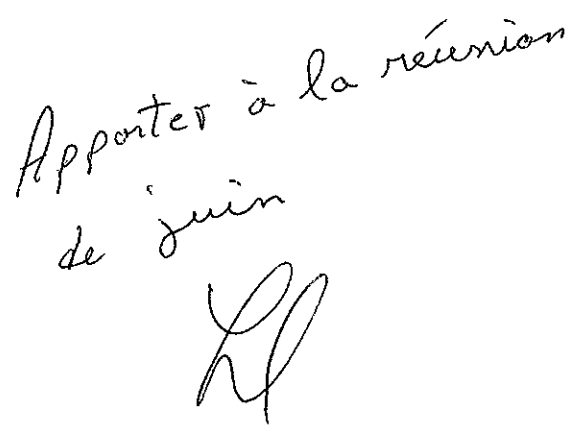 Apporter à la réunion
de juin